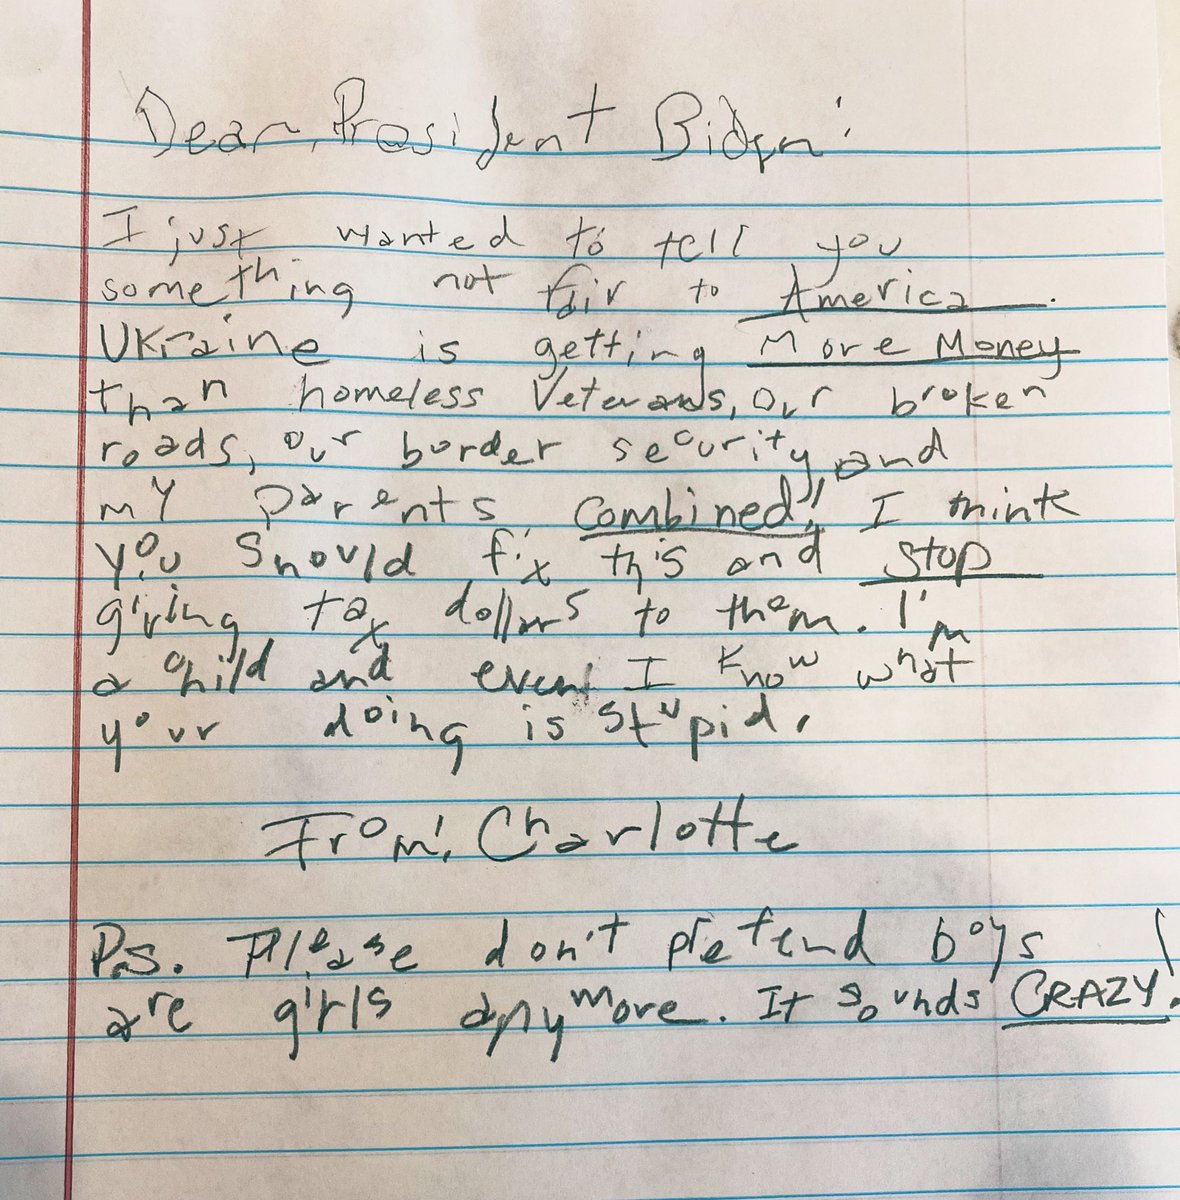 Dear, President Biden:
I just wanted to tell you
something not fair to America.
Ukraine is getting More Money
than homeless Veterans, our broken
roads, our border security, and
my parents combined! I think
you should fix this and stop
giving tax dollars to them. I'm
a child and even I know what
your doing is stupid.
From: Charlotte
P.s. Please don't pretend boys
are girls anymore. It sounds CRAZY!